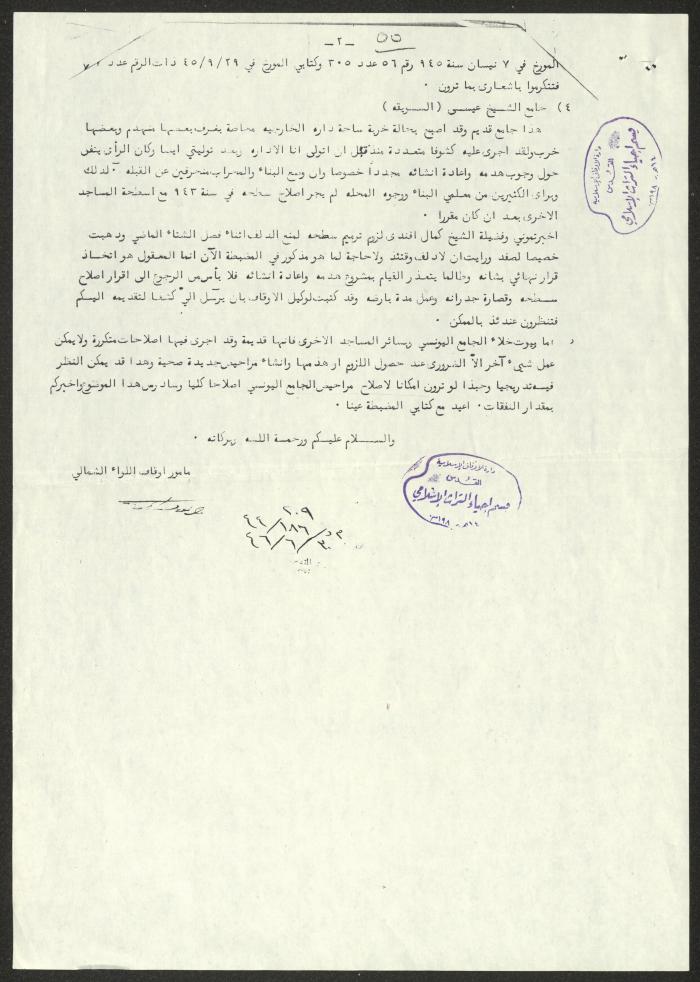 ٥٥
ـ ٢ ـ
المورخ في ٧ نيسان سنة ٩٤٥ رقم ٥٦ عدد ٣٠٥ وكتابي المورخ في ٤٥/٩/٢٩ ذات الرقم عدد
فتتكرموا باشعارى بما ترون ٠
٤) جامع الشيخ عيسى ( السويقه )
هذا جامع قديم وقد اصبح بحالة خربة ساحة داره الخارجيه محاطة بغرف بعضها منهدم وبعضها
خرب ولقد اجرى عليه كشوفا متعددة منذ قبل ان اتولى انا الاداره وبعد توليتي ايضا وكان الرأى يتفق
حول وجوب هدمه واعادة انشائه مجدداً خصوصا وان وضع البناء والمحراب منحرفين عن القبله ٠ لذلك
وبراى الكثيرين من معلمي البناء ووجوه المحله لم يجر اصلاح سطحه في سنة ٩٤٣ مع اسطحة المساجد
الاخرى بعد ان كان مقررا ٠
اخبرتموني وفضيلة الشيخ كمال افندى لزوم ترميم سطحه لمنع الدلف اثناء فصل الشتاء الماضي وذهبت
خصيصا لصفد ورايت ان لا دلف وقتئذ ولا حاجة لما هو مذكور في المضبطة الآن انما المعقول هو اتخاذ
قرار نهائي بشانه وطالما يتعذر القيام بمشروع هدمه واعادة انشائه فلا بأس من الرجوع الى اقرار اصلاح
سطحه وقصارة جدرانه وعمل مدة بارضه وقد كتبت لوكيل الاوقاف بان يرسل اليّ كشفا لتقديمه اليكم
فتنظرون عندئذ بالممكن ٠
اما بيوت خلاء الجامع اليونسي وسائر المساجد الاخرى فانها قديمة وقد اجرى فيها اصلاحات متكررة ولا يمكن
عمل شيء آخر الاّ الضرورى عند حصول اللزوم او هدمها وانشاء مراحيض جديدة صحية وهذا قد يمكن النظر
فيه تدريجيا وحبذا لو ترون امكانا لاصلاح مراحيض الجامع اليونسي اصلاحا كليا وسادرس هذا الموضوع واخبركم
بمقدار النفقات ٠ اعيد مع كتابي المضبطة عينا ٠
والسلام عليكم ورحمة الله وبركاته ٠
مامور اوقاف اللواء الشمالي
٢٠٩
٤٤/١٨٦
٤٦/٦/٣٠
دائرة الأوقاف الإسلامية
القدس
قسم إحياء التراث الإسلامي
دائرة الأوقاف الإسلامية
القدس
قسم إحياء التراث الإسلامي